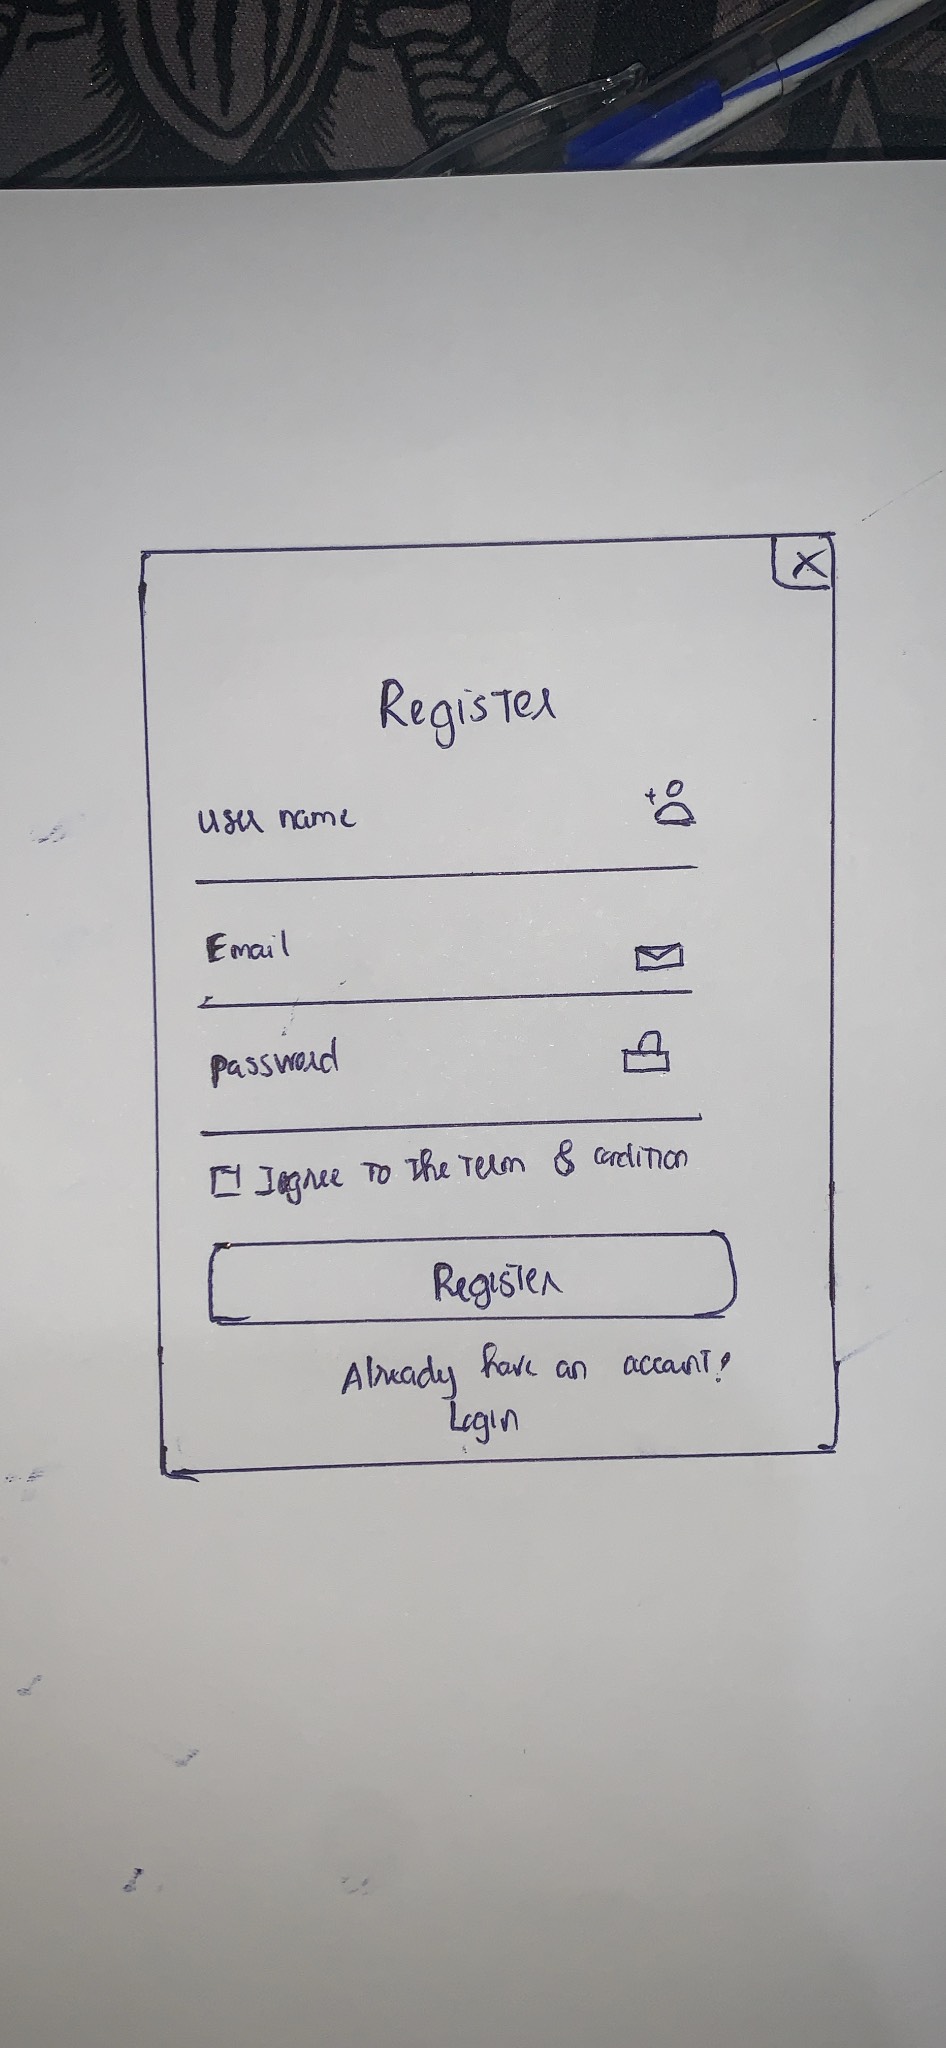 X
Register
user name
Email
password
I agree to the term & condition
Register
Already have an account?
Login